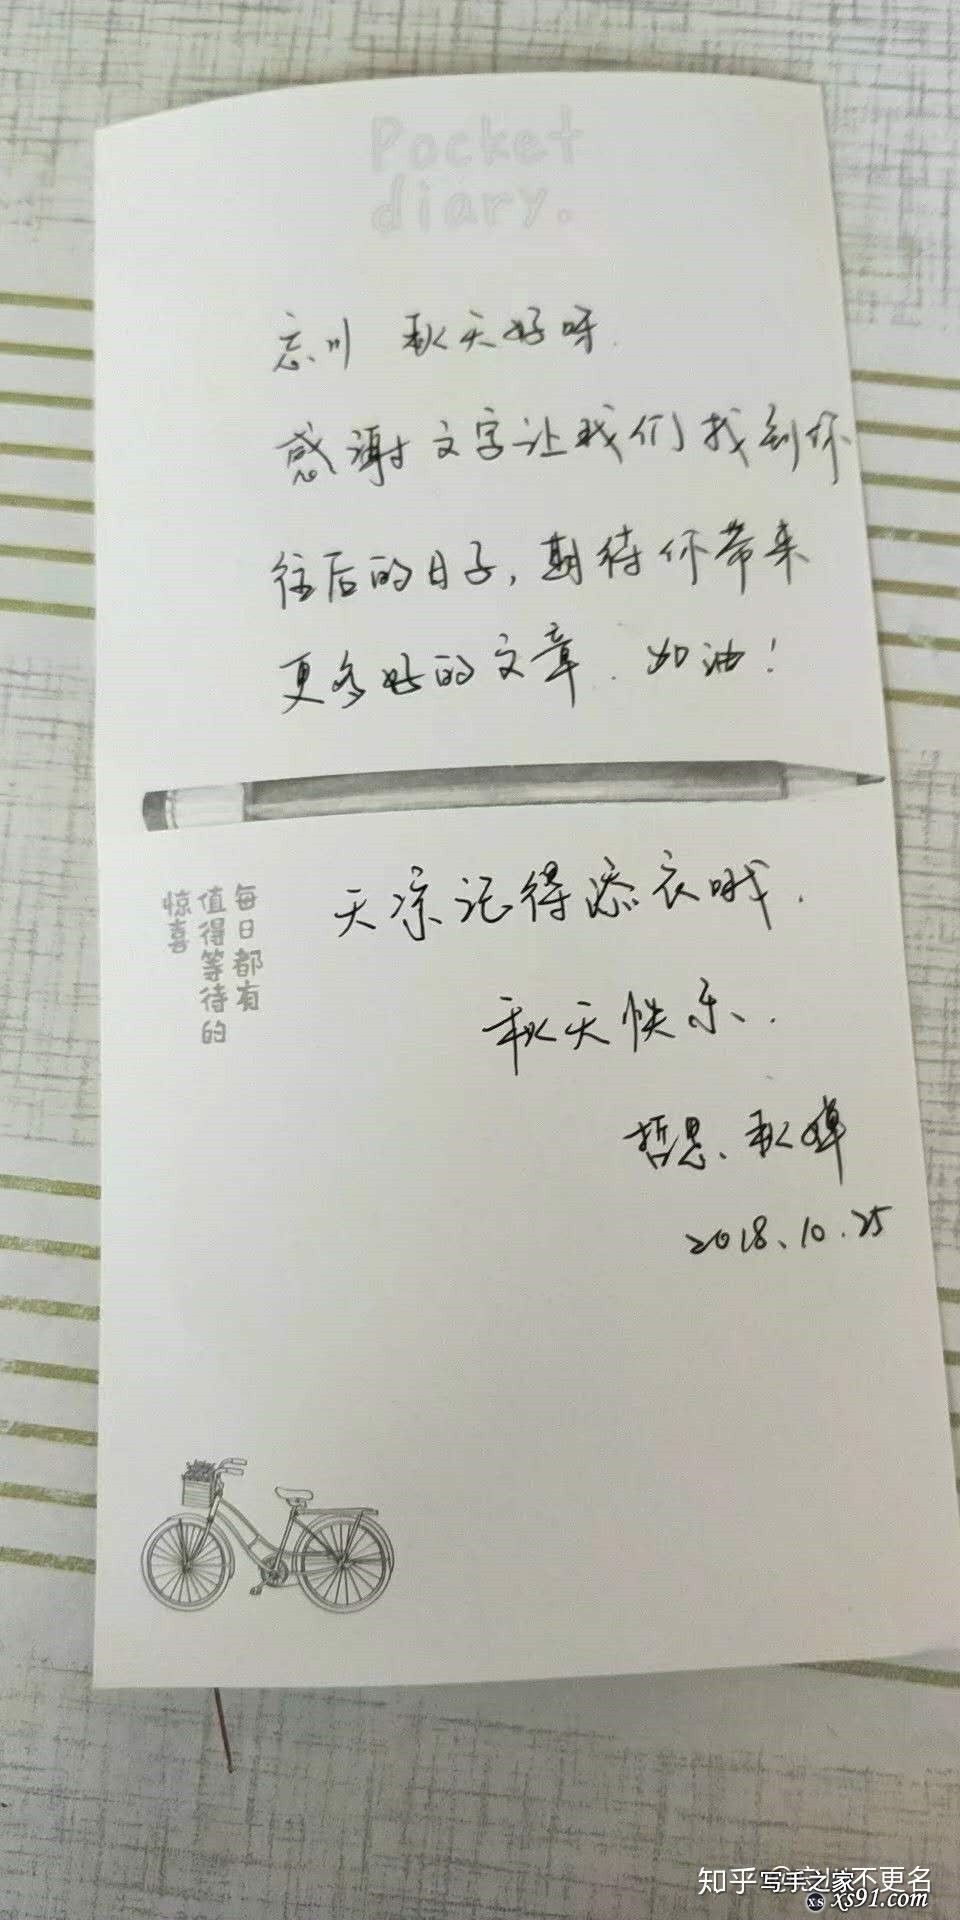 Pocket
diary.
忘川 秋天好呀.
感谢文字让我们找到你
往后的日子,期待你带来
更多好的文章.加油!
天凉记得添衣哦.
每日都有
值得等待的
惊喜
秋天快乐.
哲思、秋婵
2018.10.25
知乎
写手之家不更名
xs xs91.com